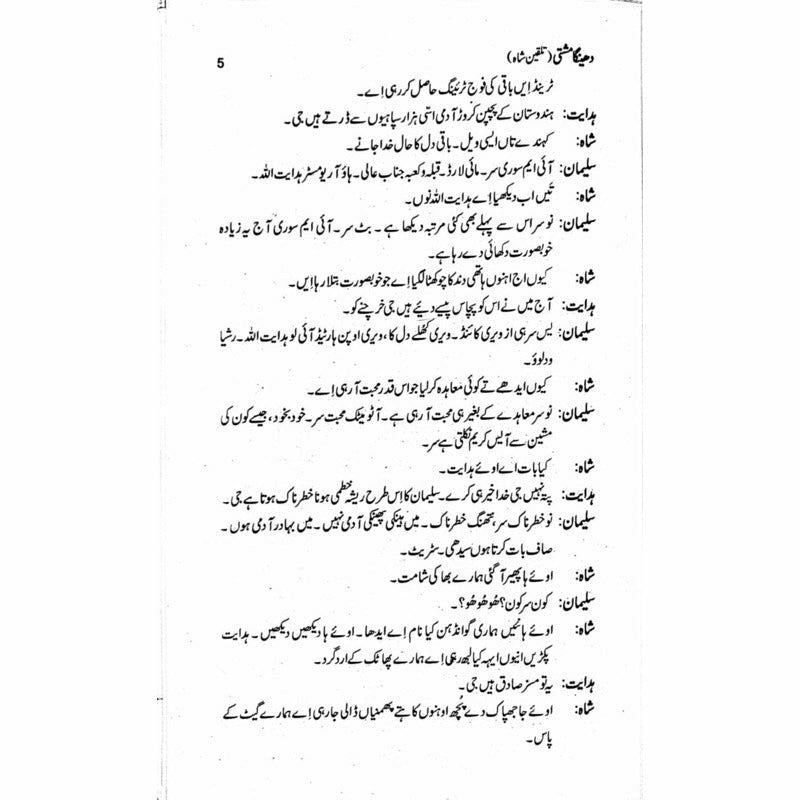 دھینگا مشتی (تلقین شاہ)
5
ٹرینڈ اِیں باقی کی فوج ٹریننگ حاصل کر رہی اِے۔
ہدایت: ہندوستان کے پچپن کروڑ آدمی اسّی ہزار سپاہیوں سے ڈرتے ہیں جی۔
شاہ: کہندے تاں ایسی ویل۔ باقی دل کا حال خدا جانے۔
سلیمان: آئی ایم سوری سر۔ مائی لارڈ۔ قبلہ و کعبہ جناب عالی۔ ہاؤ آر یو مسٹر ہدایت اللہ۔
شاہ: تَیں اب دیکھیا اِے ہدایت اللہ نوں۔
سلیمان: نو سر اس سے پہلے بھی کئی مرتبہ دیکھا ہے۔ بٹ سر۔ آئی ایم سوری آج یہ زیادہ
خوبصورت دکھائی دے رہا ہے۔
شاہ: کیوں اج اہنوں ہاتھی دند کا چوکھٹا لگیا اِے جو خوبصورت بتلا رہا اِیں۔
ہدایت: آج میں نے اس کو پچاس پیسے دیئے ہیں جی خرچنے کو۔
سلیمان: یس سر ہی از ویری کائنڈ۔ ویری کھلے دل کا، ویری اوپن ہارٹیڈ آئی لو ہدایت اللہ۔ رشیا
ود لوؤ۔
شاہ: کیوں ایدھے تے کوئی معاہدہ کر لیا جو اس قدر محبت آ رہی اِے۔
سلیمان: نو سر معاہدے کے بغیر ہی محبت آ رہی ہے۔ آٹو میٹک محبت سر۔ خود بخود، جیسے کون کی
مشین سے آیس کریم نکلتی ہے سر۔
شاہ: کیا بات اے اوئے ہدایت۔
ہدایت: پتہ نہیں جی خدا خیر ہی کرے۔ سلیمان کا اِس طرح ریشہ خطمی ہونا خطرناک ہوتا ہے جی۔
سلیمان: نو خطرناک سر، نتھنگ خطرناک۔ میں ہینکی پھینکی آدمی نہیں۔ میں بہادر آدمی ہوں۔
صاف بات کرتا ہوں سیدھی۔ سٹریٹ۔
شاہ: اوئے ہا پھیر آ گئی ہمارے بھا کی شامت۔
سلیمان: کون سر کون؟ ھُو ھُو ھُو؟۔
شاہ: اوئے ہا تئیں ہماری گوانڈہن کیا نام اِے ایدھا۔ اوئے ہا دیکھیں دیکھیں۔ ہدایت
پکڑیں انیوں ایہہ کیا لبھ رہی اِے ہمارے پھاٹک کے اردگرد۔
ہدایت: یہ تو مسز صادق ہیں جی۔
شاہ: اوئے جا جھپاک دے پُچھ اوہنوں کا ہتے پھمنیاں ڈالی جا رہی اِے ہمارے گیٹ کے
پاس۔